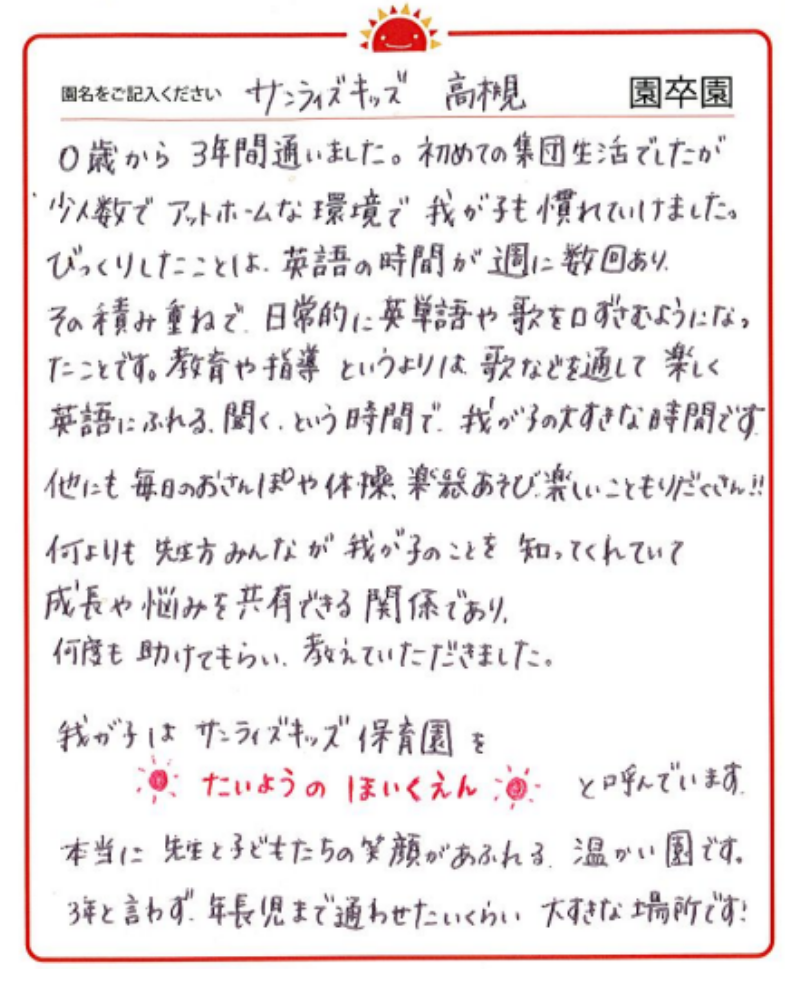 園名をご記入ください サンライズキッズ 高槻 園卒園
0歳から 3年間通いました。初めての集団生活でしたが
少人数で アットホームな環境で 我が子も慣れていけました。
びっくりしたことは、英語の時間が週に数回あり、
その積み重ねで、日常的に英単語や歌を口ずさむようになっ
たことです。教育や指導 というよりは、歌などを通して 楽しく
英語にふれる、聞く、という時間で、我が子の大すきな時間です。
他にも 毎日のおさんぽや体操、楽器あそび、楽しいこともりだくさん!!
何よりも 先生方みんなが 我が子のことを 知ってくれていて
成長や悩みを共有できる関係であり、
何度も 助けてもらい、教えていただきました。
我が子は サンライズキッズ保育園 を
たいようの ほいくえん と呼んでいます。
本当に 先生と子どもたちの笑顔があふれる、温かい園です。
3年と言わず、年長児まで通わせたいくらい 大すきな場所です!